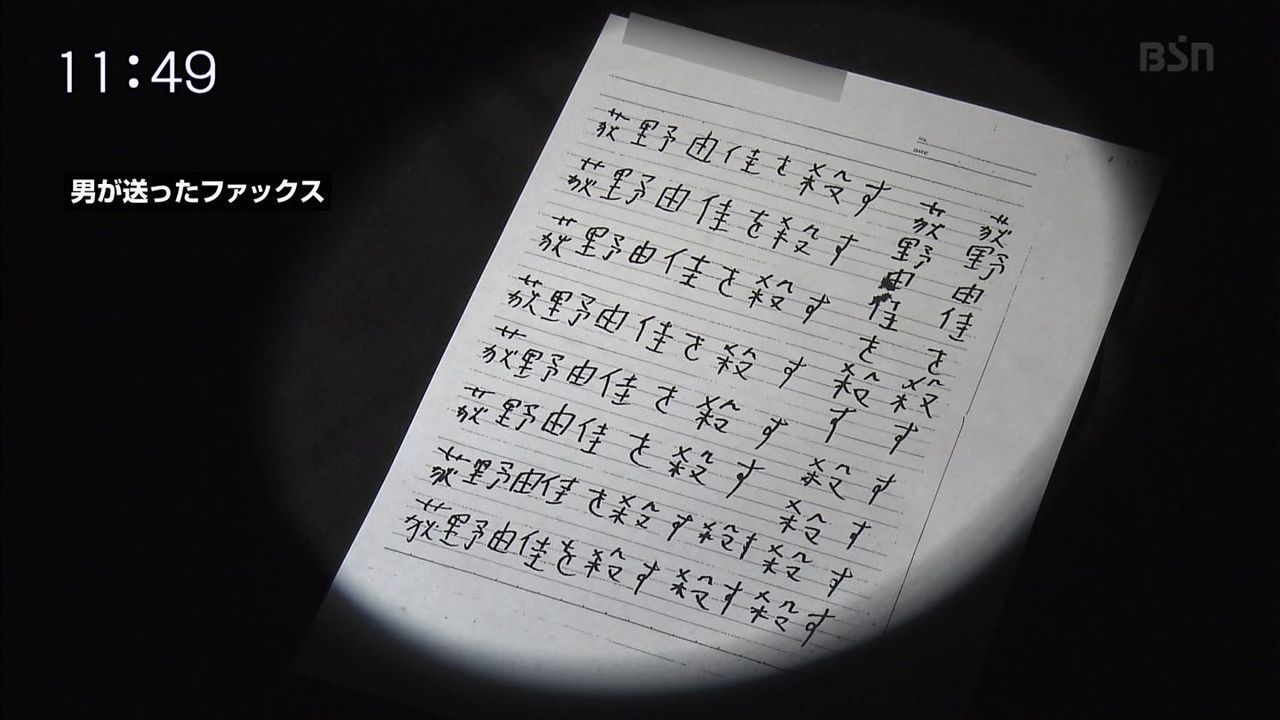 11:49
BSN
男が送ったファックス
No.
DATE
荻野由佳を殺す
荻野由佳を殺す
荻野由佳を殺す
荻野由佳を殺す
荻野由佳を殺す
荻野由佳を殺す
荻野由佳を殺す殺す殺す
荻野由佳を殺す殺す殺す
荻野由佳を殺す
荻野由佳を殺す
殺す
殺す